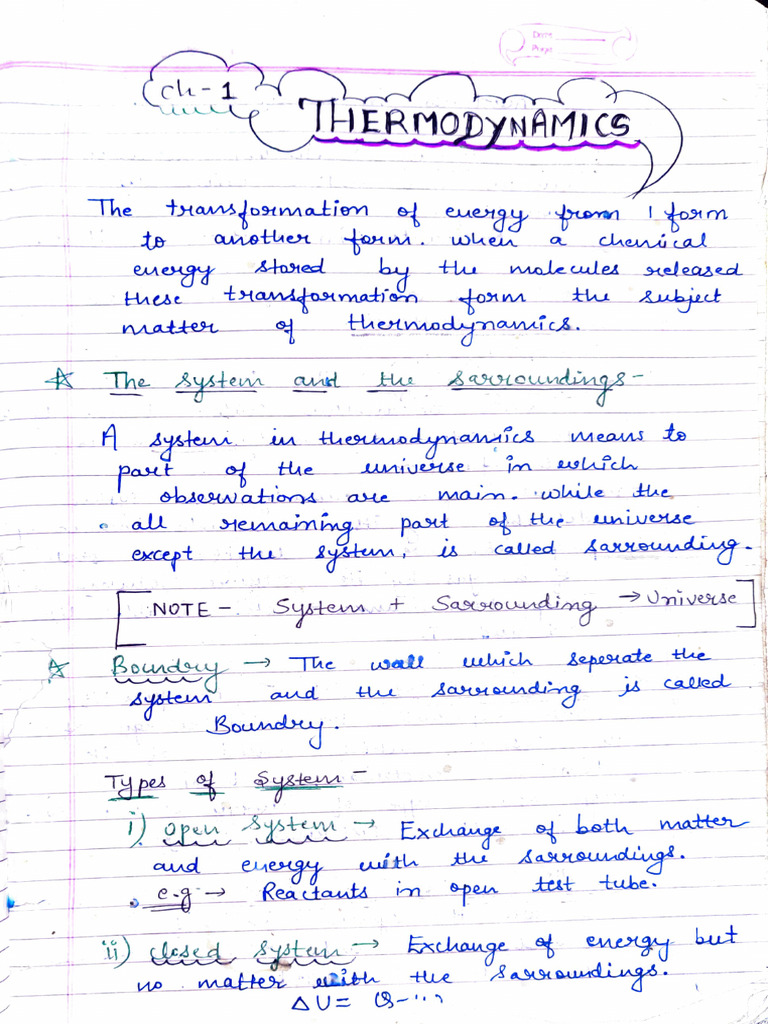 Date
Page
Ch-1
THERMODYNAMICS
The transformation of energy from 1 form
to another form. when a chemical
energy stored by the molecules released
these transformation form the subject
matter of thermodynamics.
☆ The system and the sarroundings-
A system in thermodynamics means to
part of the universe in which
observations are main. while the
all remaining part of the universe
except the system, is called sarrounding.
NOTE - System + Sarrounding → Universe
☆ Boundry → The wall which seperate the
system and the sarrounding is called
Boundry.
Types of System -
i) open system → Exchange of both matter
and energy with the sarroundings.
e.g → Reactants in open test tube.
ii) closed system → Exchange of energy but
no matter with the sarroundings.
ΔU =